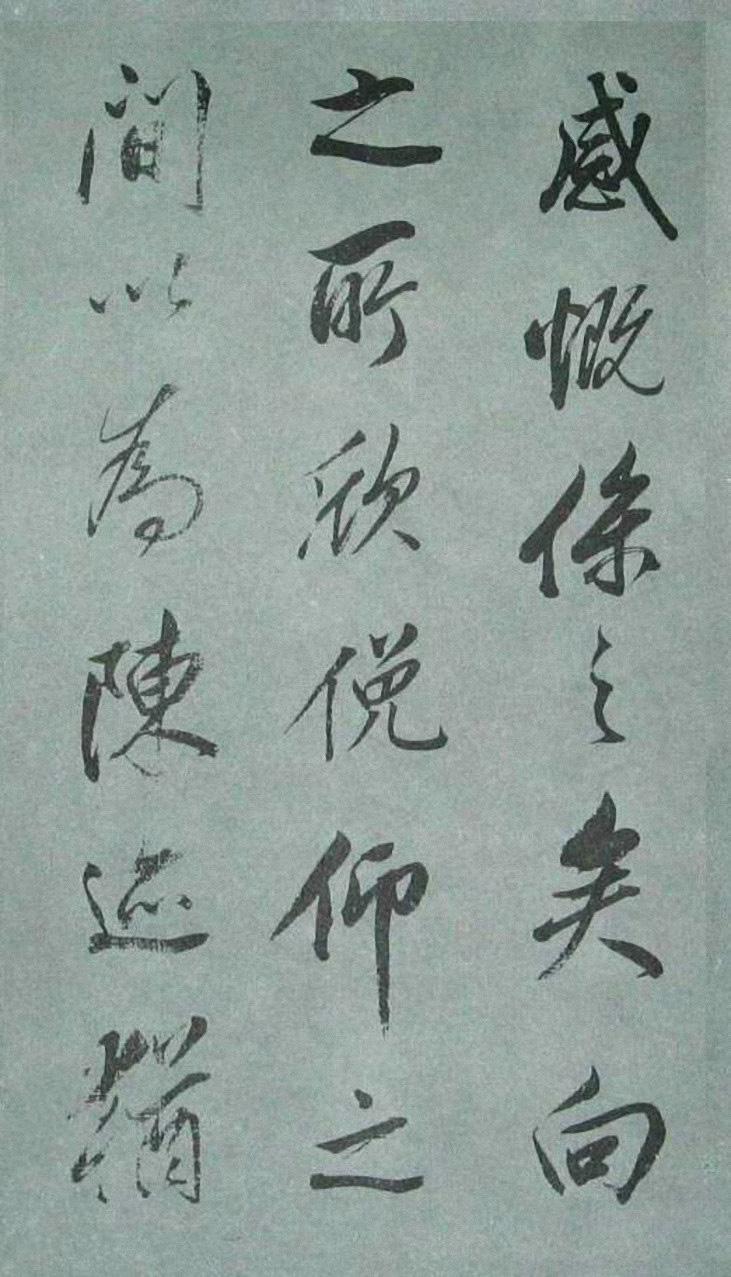 感慨係之矣向
之所欣俛仰之
間以為陳迹猶